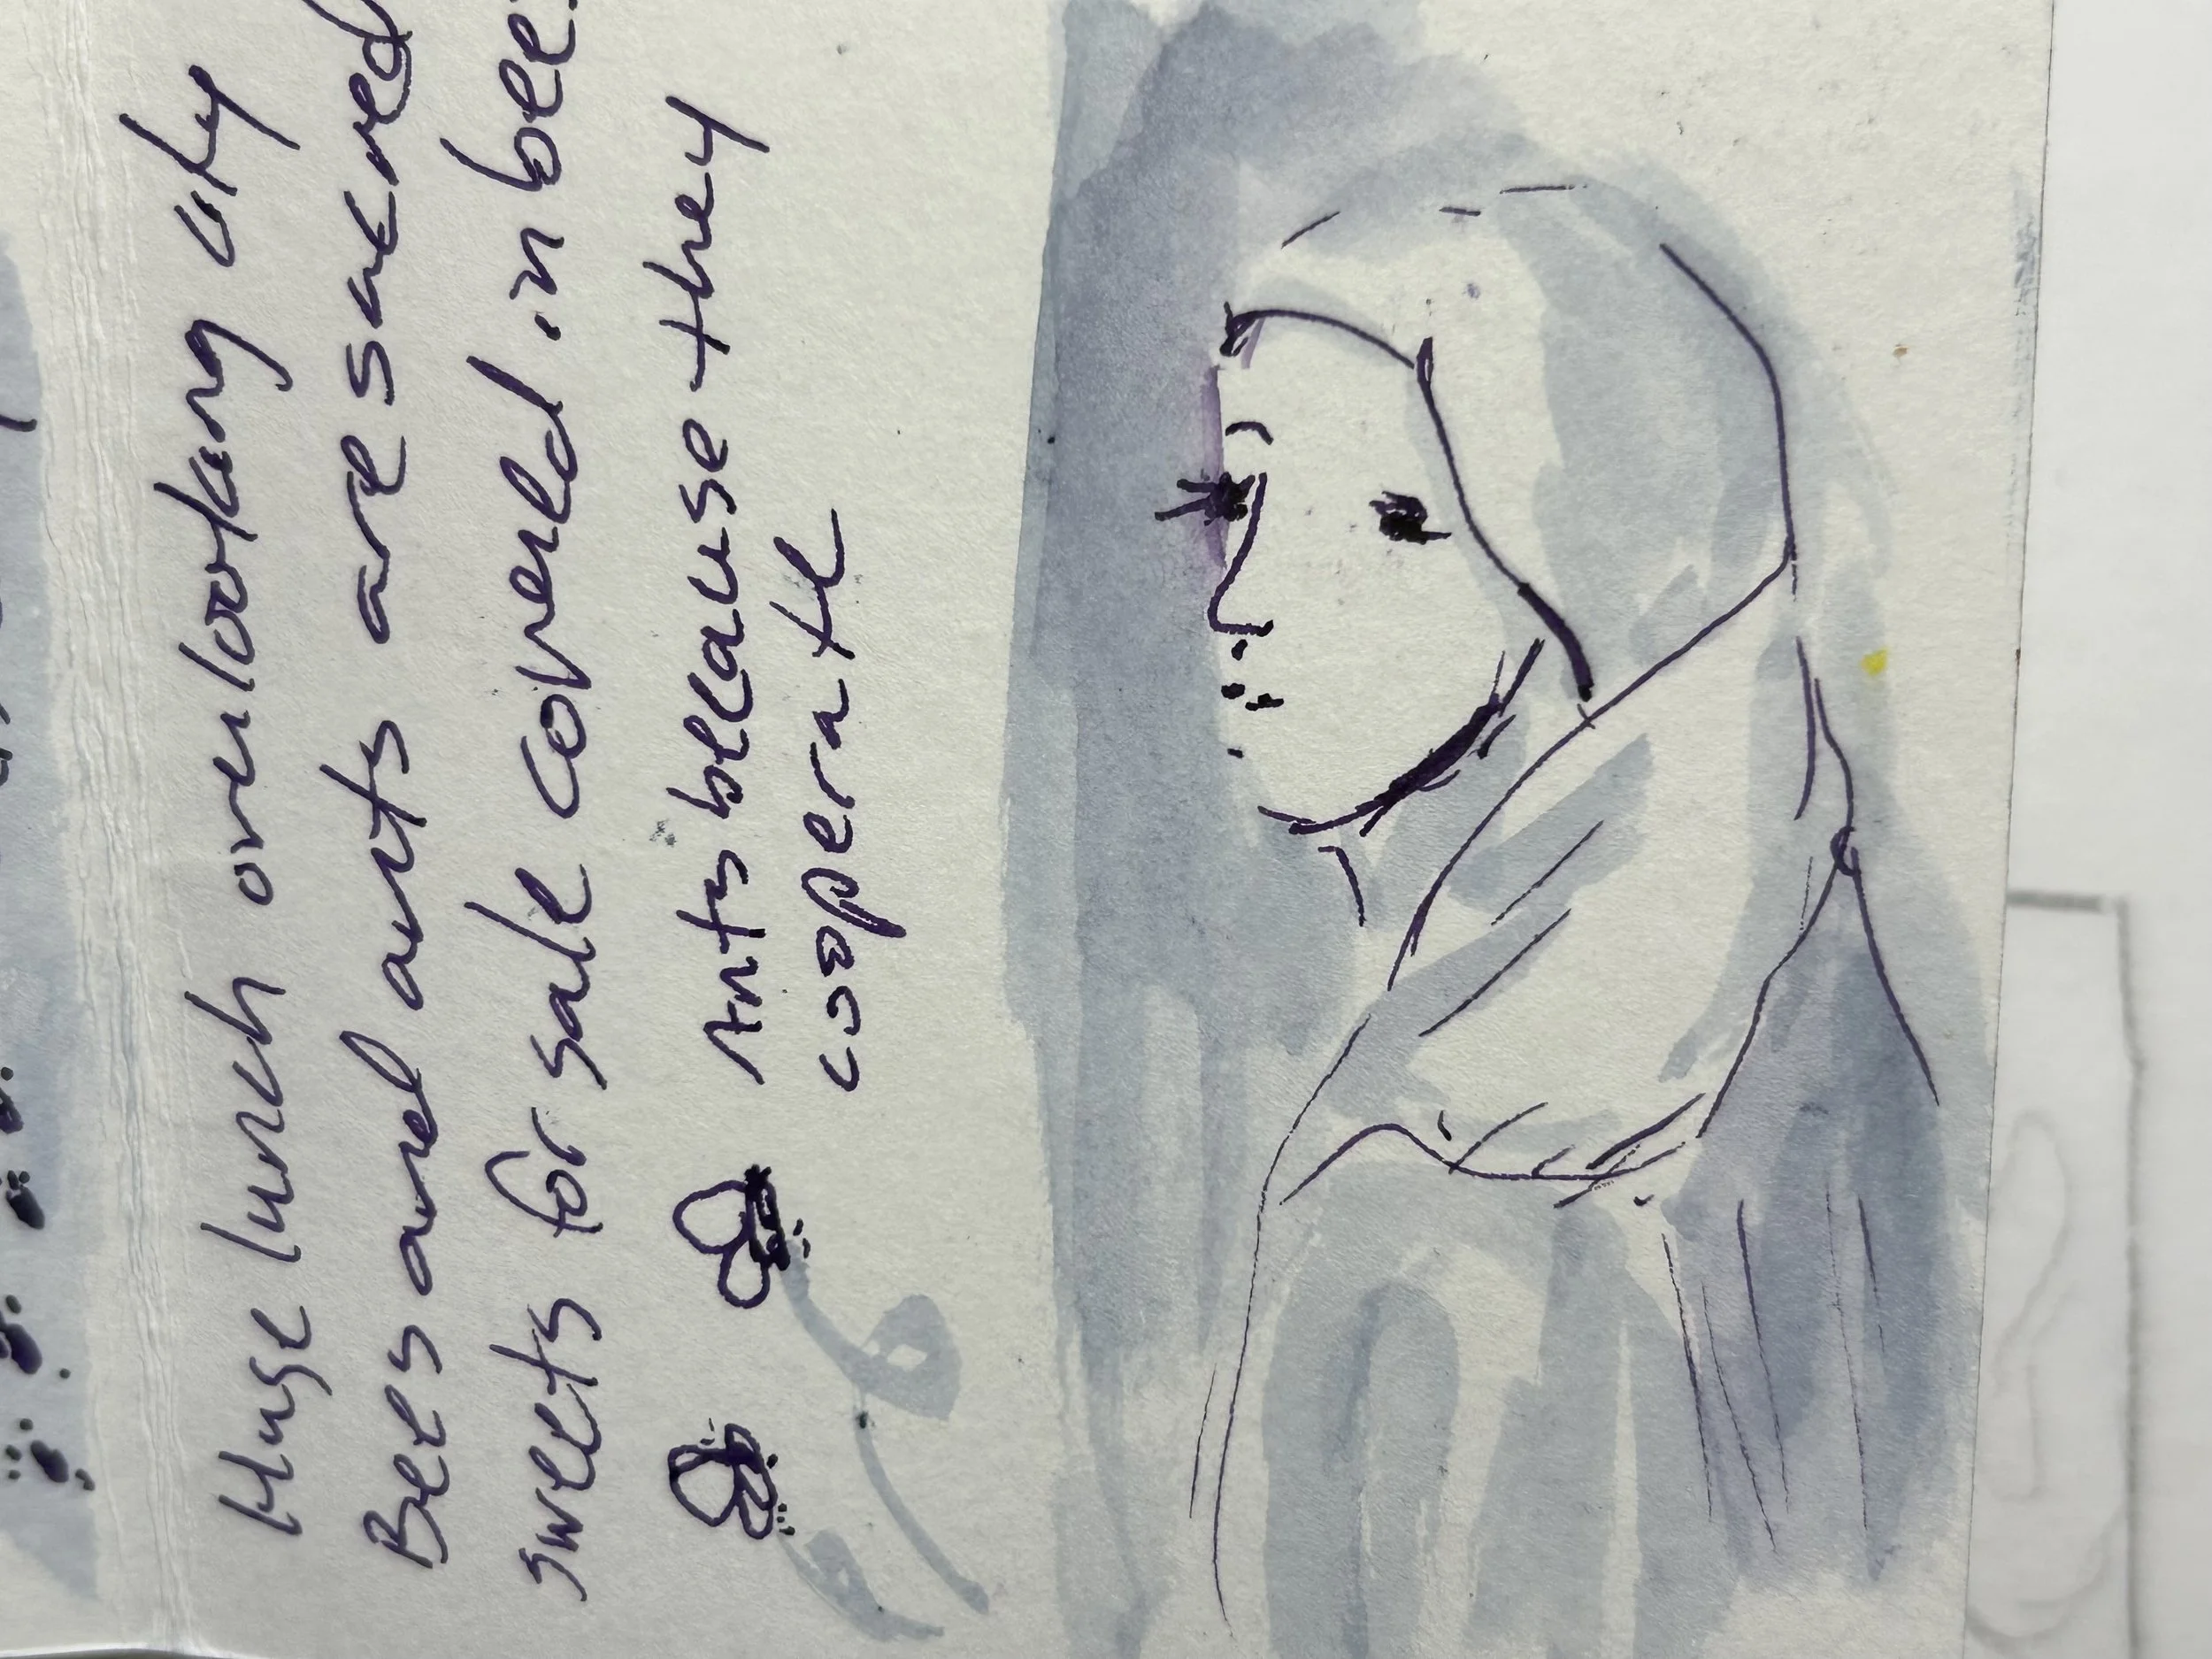 Huge lunch overlooking city
Bees and ants are sacred
sweets for sale covered in bees
Ants because they
cooperate